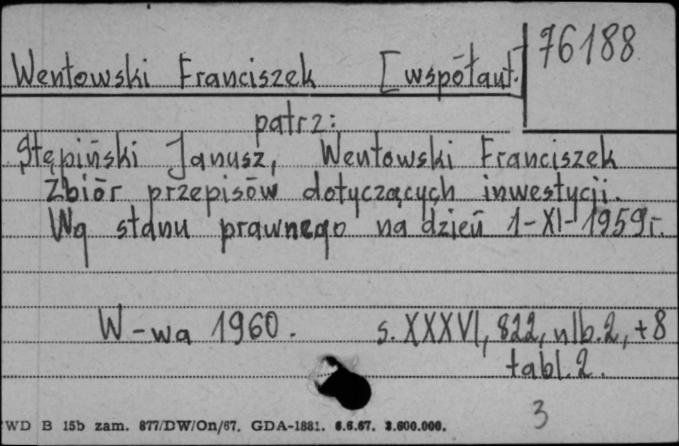 76188
Wentowski Franciszek [współaut.]
patrz:
Stępiński Janusz, Wentowski Franciszek
Zbiór przepisów dotyczących inwestycji.
Wg stanu prawnego na dzień 1-XI-1959 r.
W-wa 1960. s. XXXVI, 822, nlb. 2, +8
tabl. 2.
3
WD B 15b zam. 877/DW/On/67. GDA-1881. 6.6.67. 3.600.000.